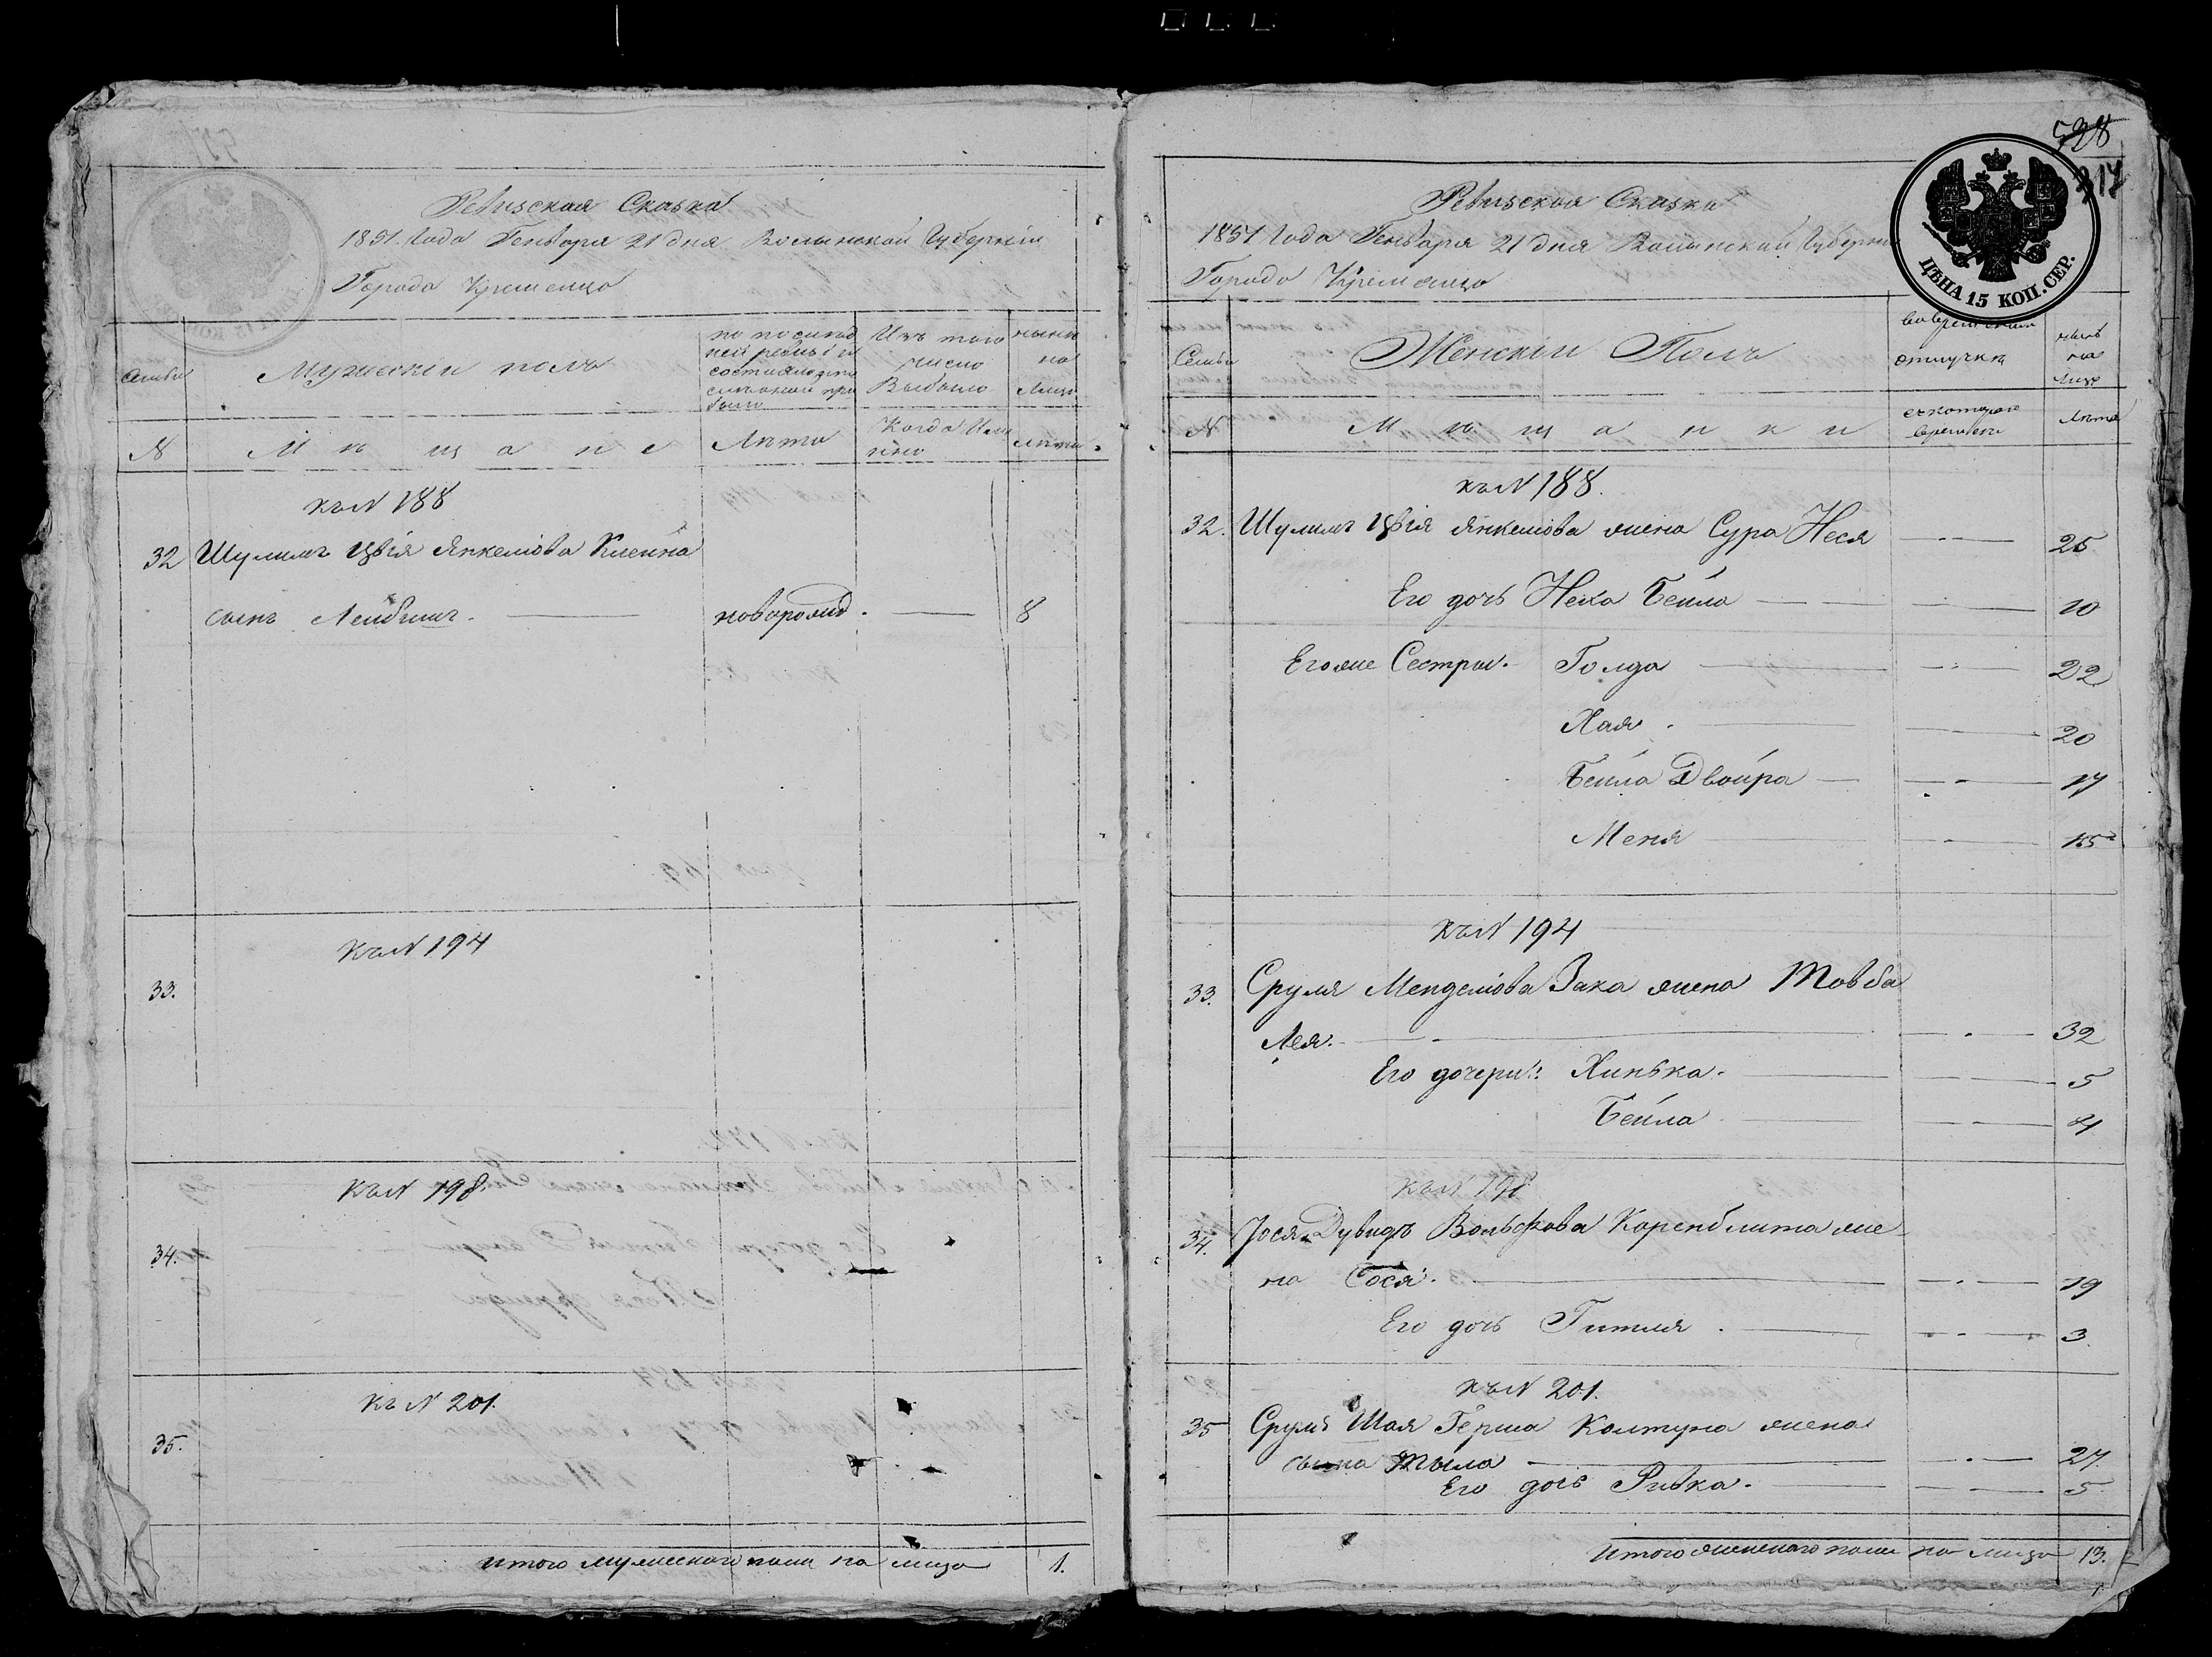 Ревизская Сказка
1851. Года Генваря 21 дня Волынской Губерніи
Города Кременца
Семьи
Мужескій полъ
по послѣд
ней ревизіи
состояло и
послѣ оной при
было
Изъ того
числа
Выбыло
нынѣ
на
лицо
N
Мѣщане
Лѣта
Когда Имя
нно
Лѣта
къ N 188
32 Шулимъ Цвія Янкеліова Клейна
сынъ Лейбишъ. новорожд. 8
къ N 194
33.
къ N 198.
34.
къ N 201.
35.
итого мужескаго пола на лицо 1.
528
317
ЦѢНА 15 КОП. СЕР.
Ревизская Сказка
1851 Года Генваря 21 дня Волынской Губерніи
Города Кременца
Семьи
Женскій Полъ
во временной
отлучкѣ
нынѣ
на
лице
N
Мѣщанки
съ котораго
времени
Лѣта
къ N 188.
32. Шулимъ Цвія Янкеліова жена Сура Неся 25
Его дочь Неха Бейла 10
Его же Сестры. Голда 22
Хая. 20
Бейла Двойра 17
Меня 15
къ N 194
33. Сруля Менделіова Зака жена Товба
Лея. 32
Его дочери: Хинька. 5
Бейла 4
къ N 198
34. Іося Дувидъ Вольфова Коренблита же-
на Сося. 19
Его дочь Гитля. 3.
къ N 201.
35 Сруль Шая Герша Колтуна жена
сына Тыла 27.
Его дочь Ривка. 5
итого женскаго пола на лицо 13.